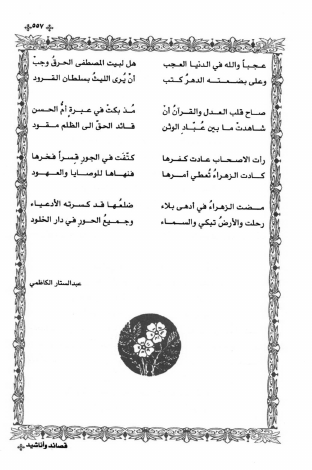 ٥٥٧
عجباً والله في الدنيا العجب هل لبيت المصطفى الحرقُ وجبْ
وعلى بضعتـه الدهرُ كتب أنْ يُرى الليثُ بسلطان القرود
صاح قلب العدل والقرآنُ أنْ مُذ بكتْ في عبرةٍ أمُّ الحسن
شاهدتْ ما بين عُبّادِ الوثن قائد الحقّ الى الظلم مقود
رأت الاصحاب عادت كفرها كتّفت في الجورِ قسراً فخرها
كادت الزهراءُ تُعطي أمرها فنهاها للوصايا والعهود
مضت الزهراءُ في أدهى بلاء ضلعُها قد كسرته الأدعياء
رحلت والأرضُ تبكي والسماء وجميعُ الحورِ في دار الخلود
عبدالستار الكاظمي
قصائد وأناشيد